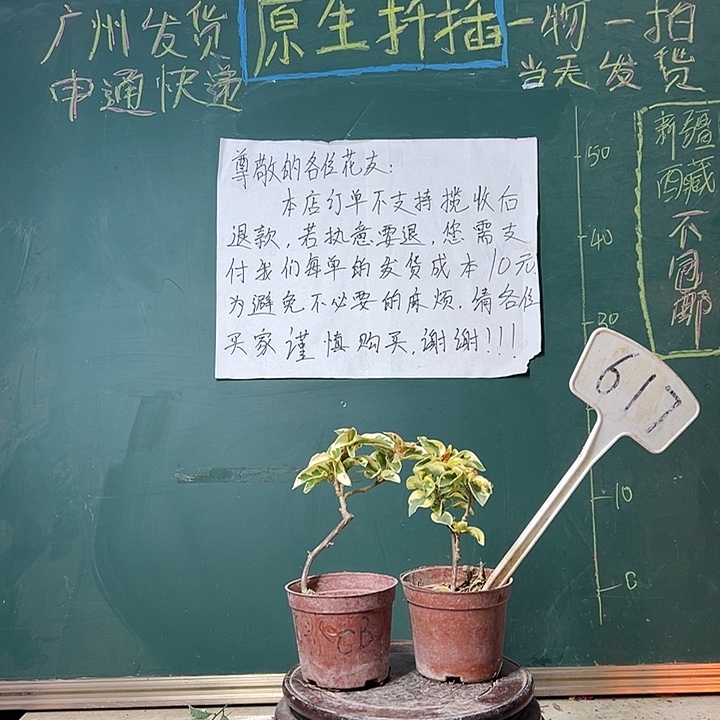 广州发货
申通快递
原生扦插
一物一拍
当天发货
新疆
西藏
不包邮
尊敬的各位花友:
本店订单不支持揽收后
退款,若执意要退,您需支
付我们每单的发货成本10元
为避免不必要的麻烦.请各位
买家谨慎购买,谢谢!!!
50
40
30
10
0
617
GB